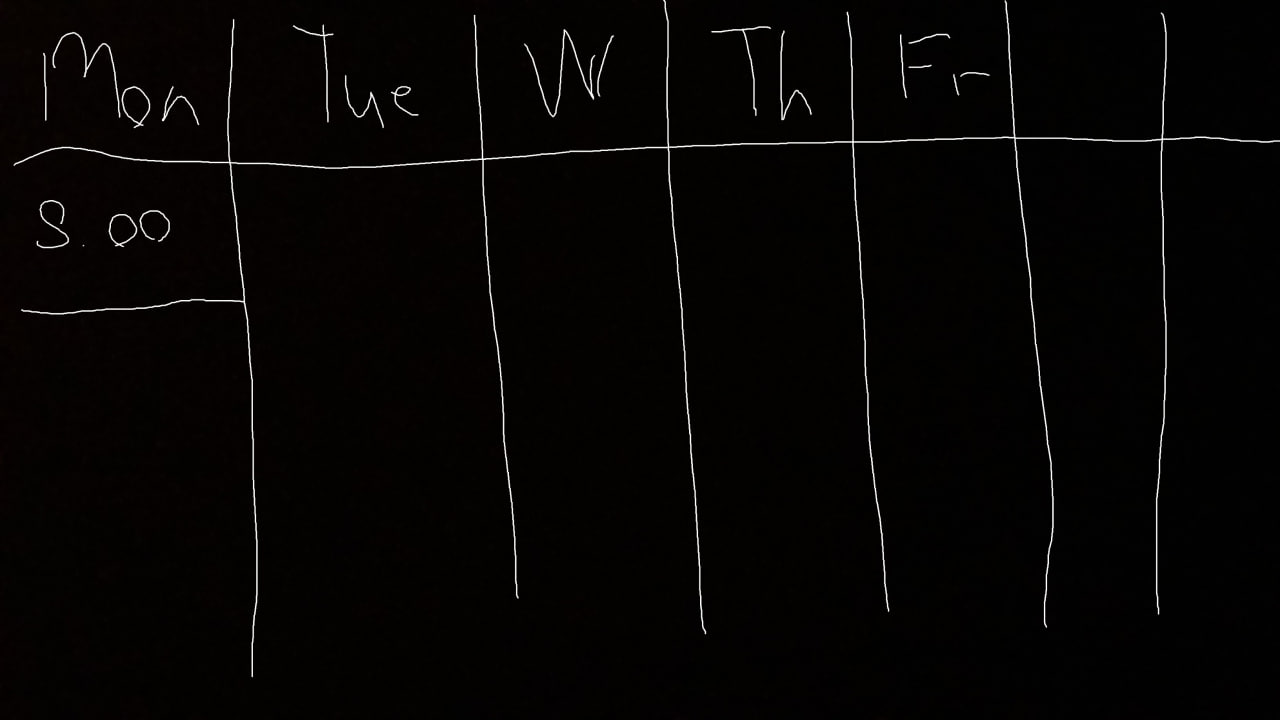 Mon Tue W Th Fr
8.00